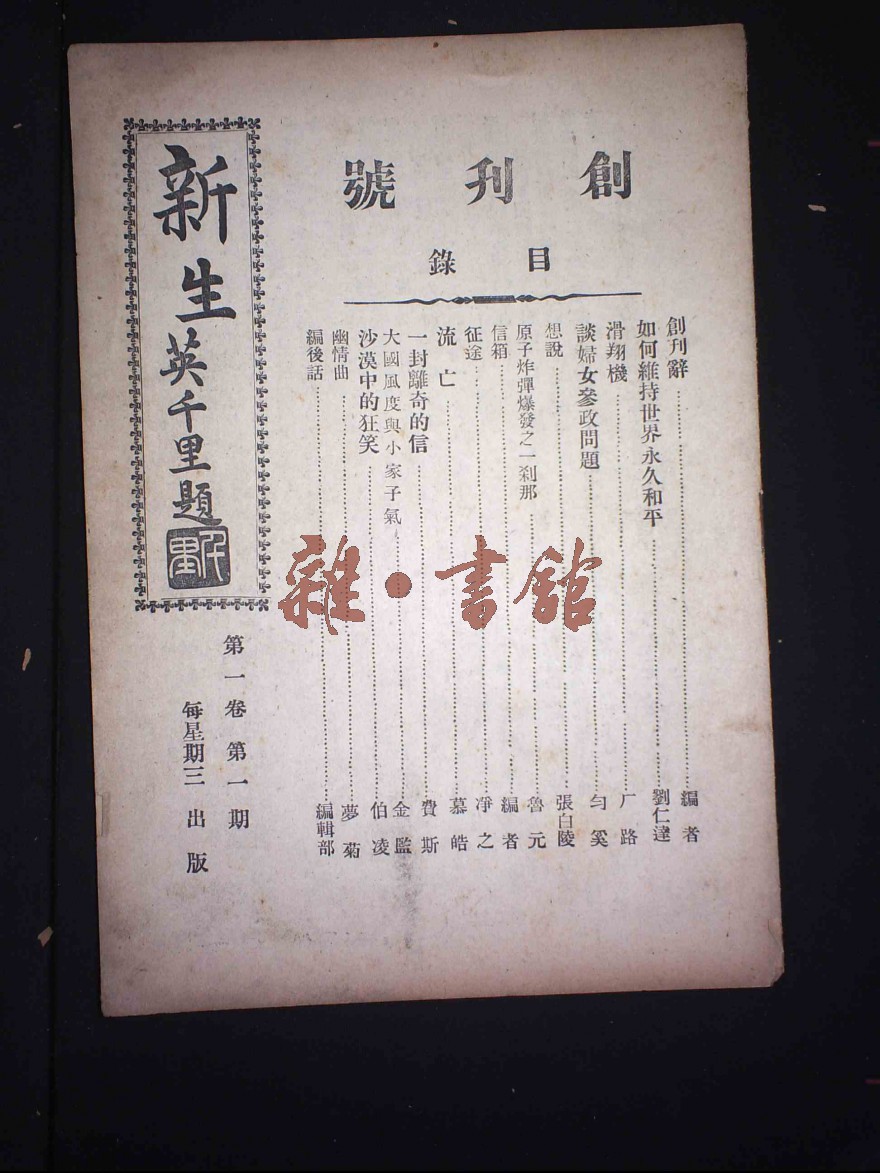 創刊號
目錄
創刊辭 編者
如何維持世界永久和平 劉仁達
滑翔機 厂路
談婦女參政問題 勻奚
想說 張白陵
原子炸彈爆發之一剎那 魯元
信箱 編者
征途 凈之
流亡 慕皓
一封離奇的信 費斯
大國風度與小家子氣 金監
沙漠中的狂笑 伯凌
幽情曲 夢菊
編後話 編輯部
新生
英千里題
千里
第一卷第一期
每星期三出版
雜·書館